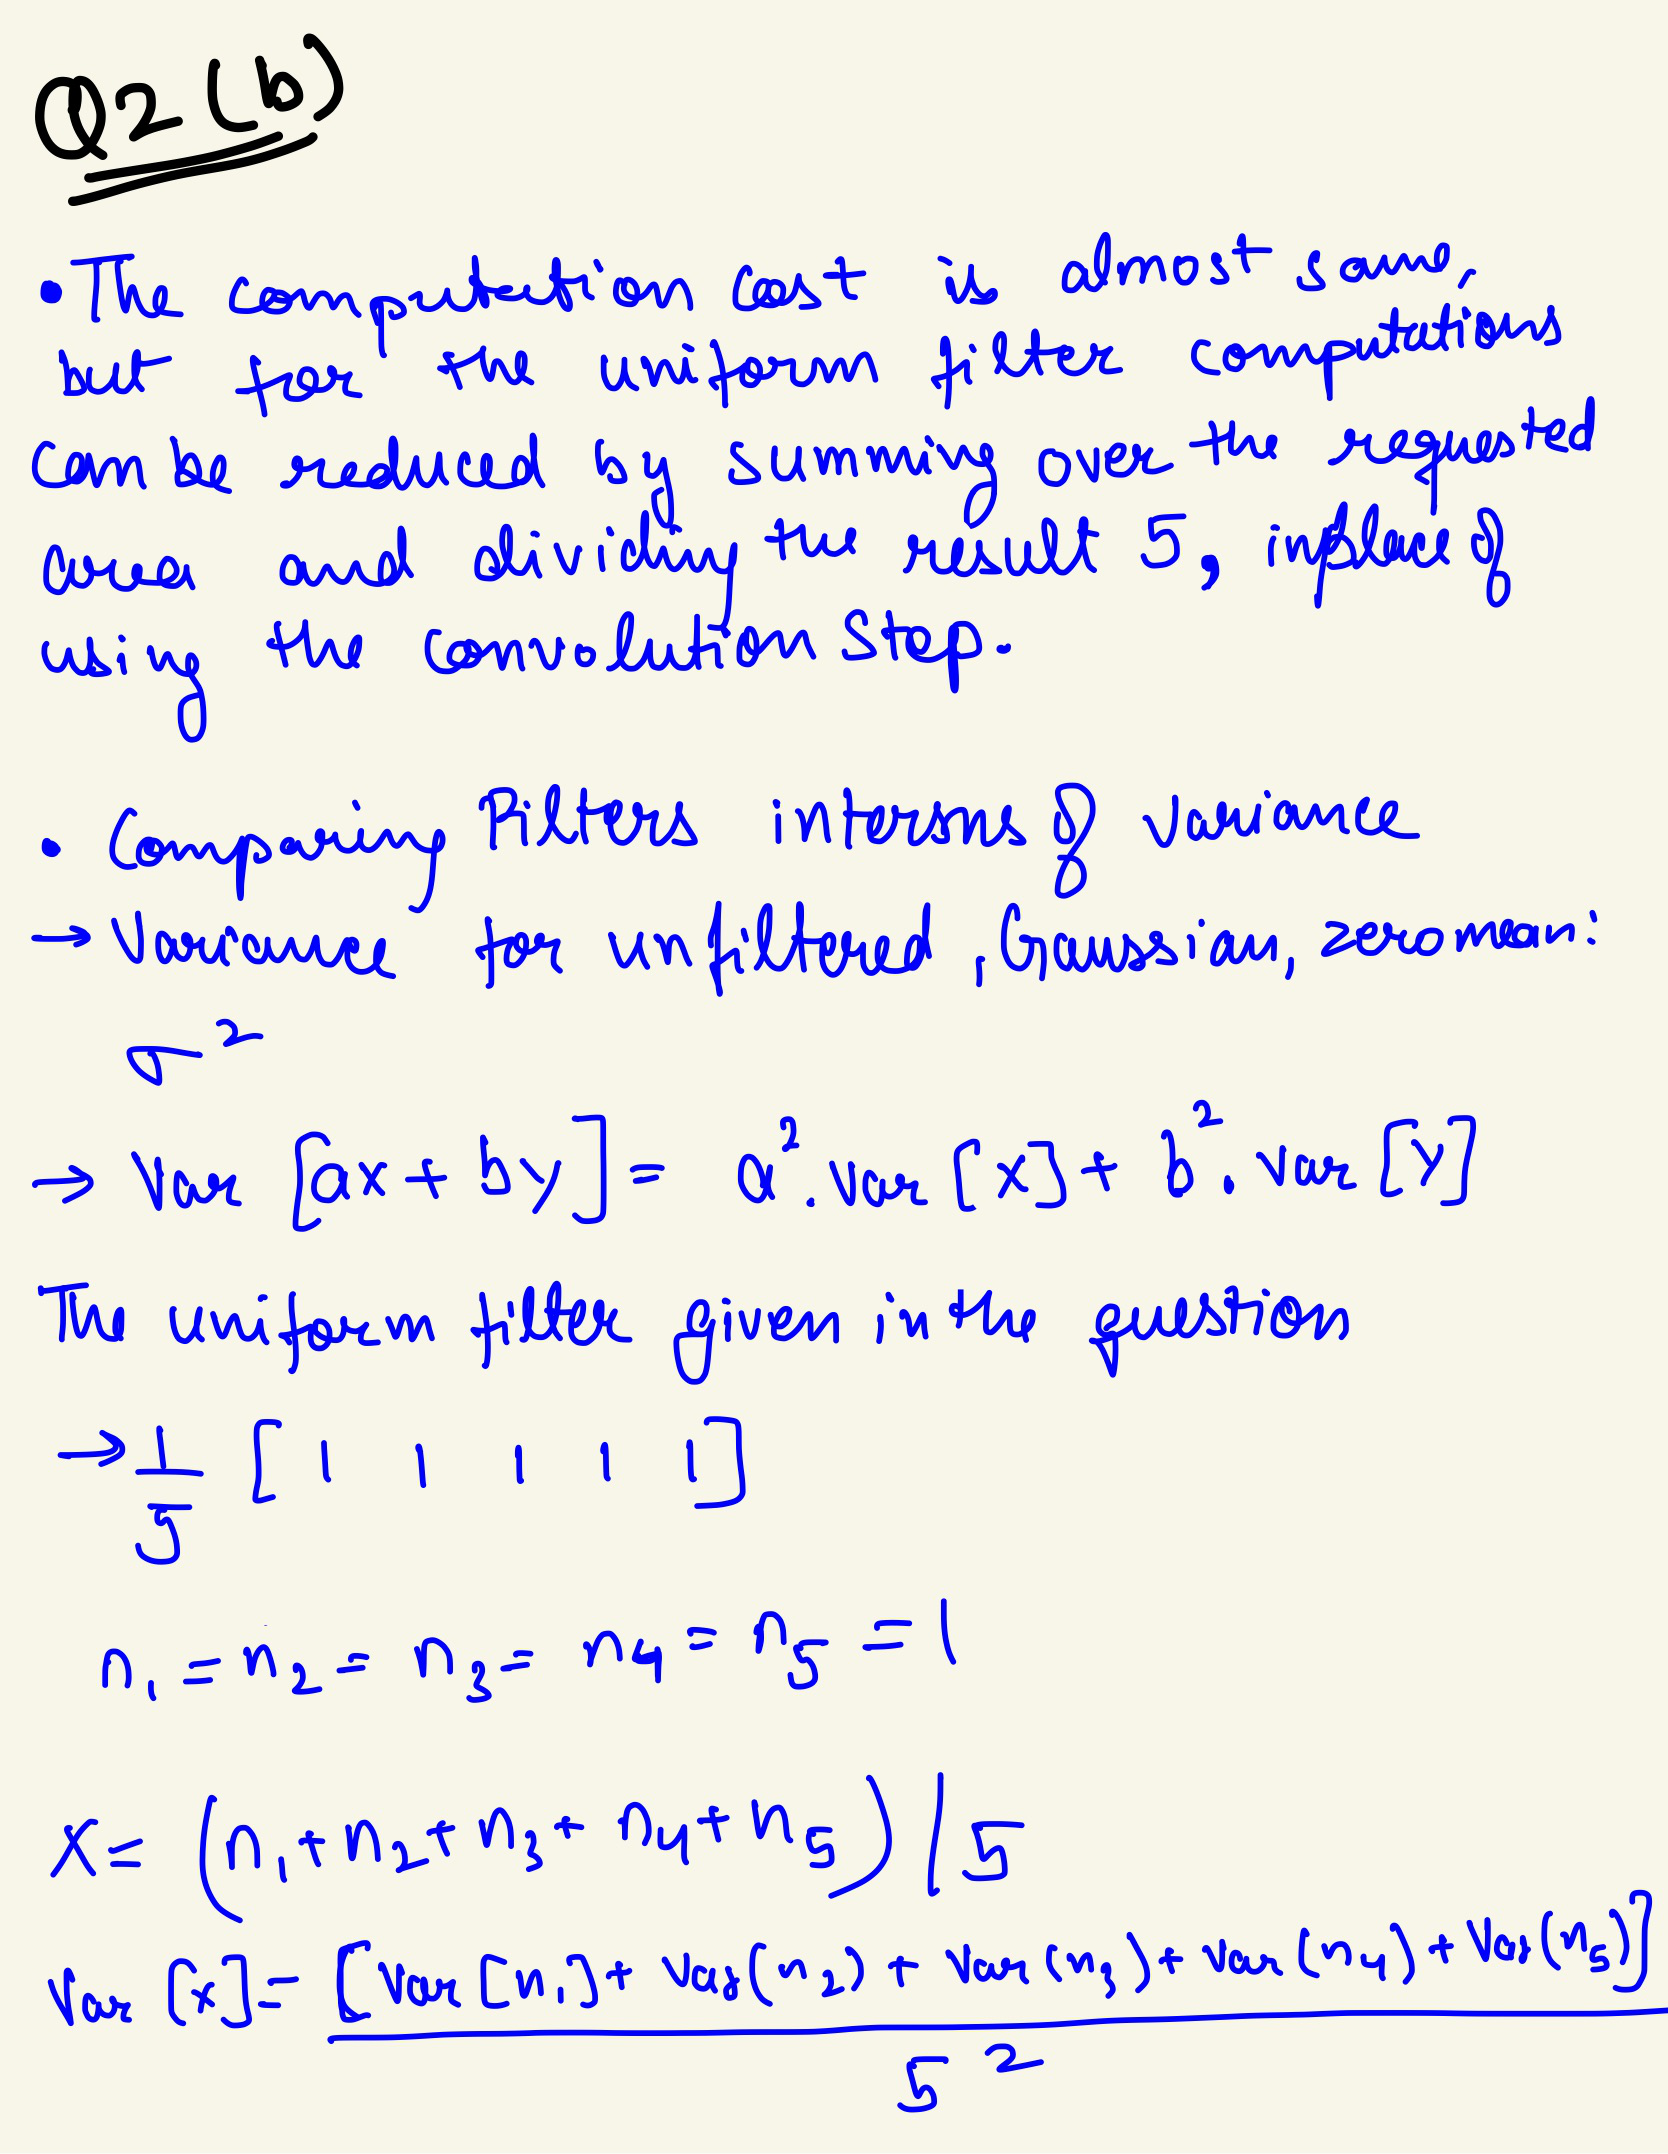 Q2 (b)
• The computation cost is almost same,
but for the uniform filter computations
can be reduced by summing over the requested
area and dividing the result 5, inplace of
using the convolution step.
• Comparing Filters interms of variance
→ Variance for unfiltered, Gaussian, zero mean:
σ²
→ Var [ax + by] = a². Var [x] + b². Var [y]
The uniform filter given in the question
→ 1/5 [ 1 1 1 1 1 ]
n₁ = n₂ = n₃ = n₄ = n₅ = 1
X = (n₁ + n₂ + n₃ + n₄ + n₅) / 5
Var [x] = [Var [n₁] + Var (n₂) + Var (n₃) + Var (n₄) + Var (n₅)]
5²